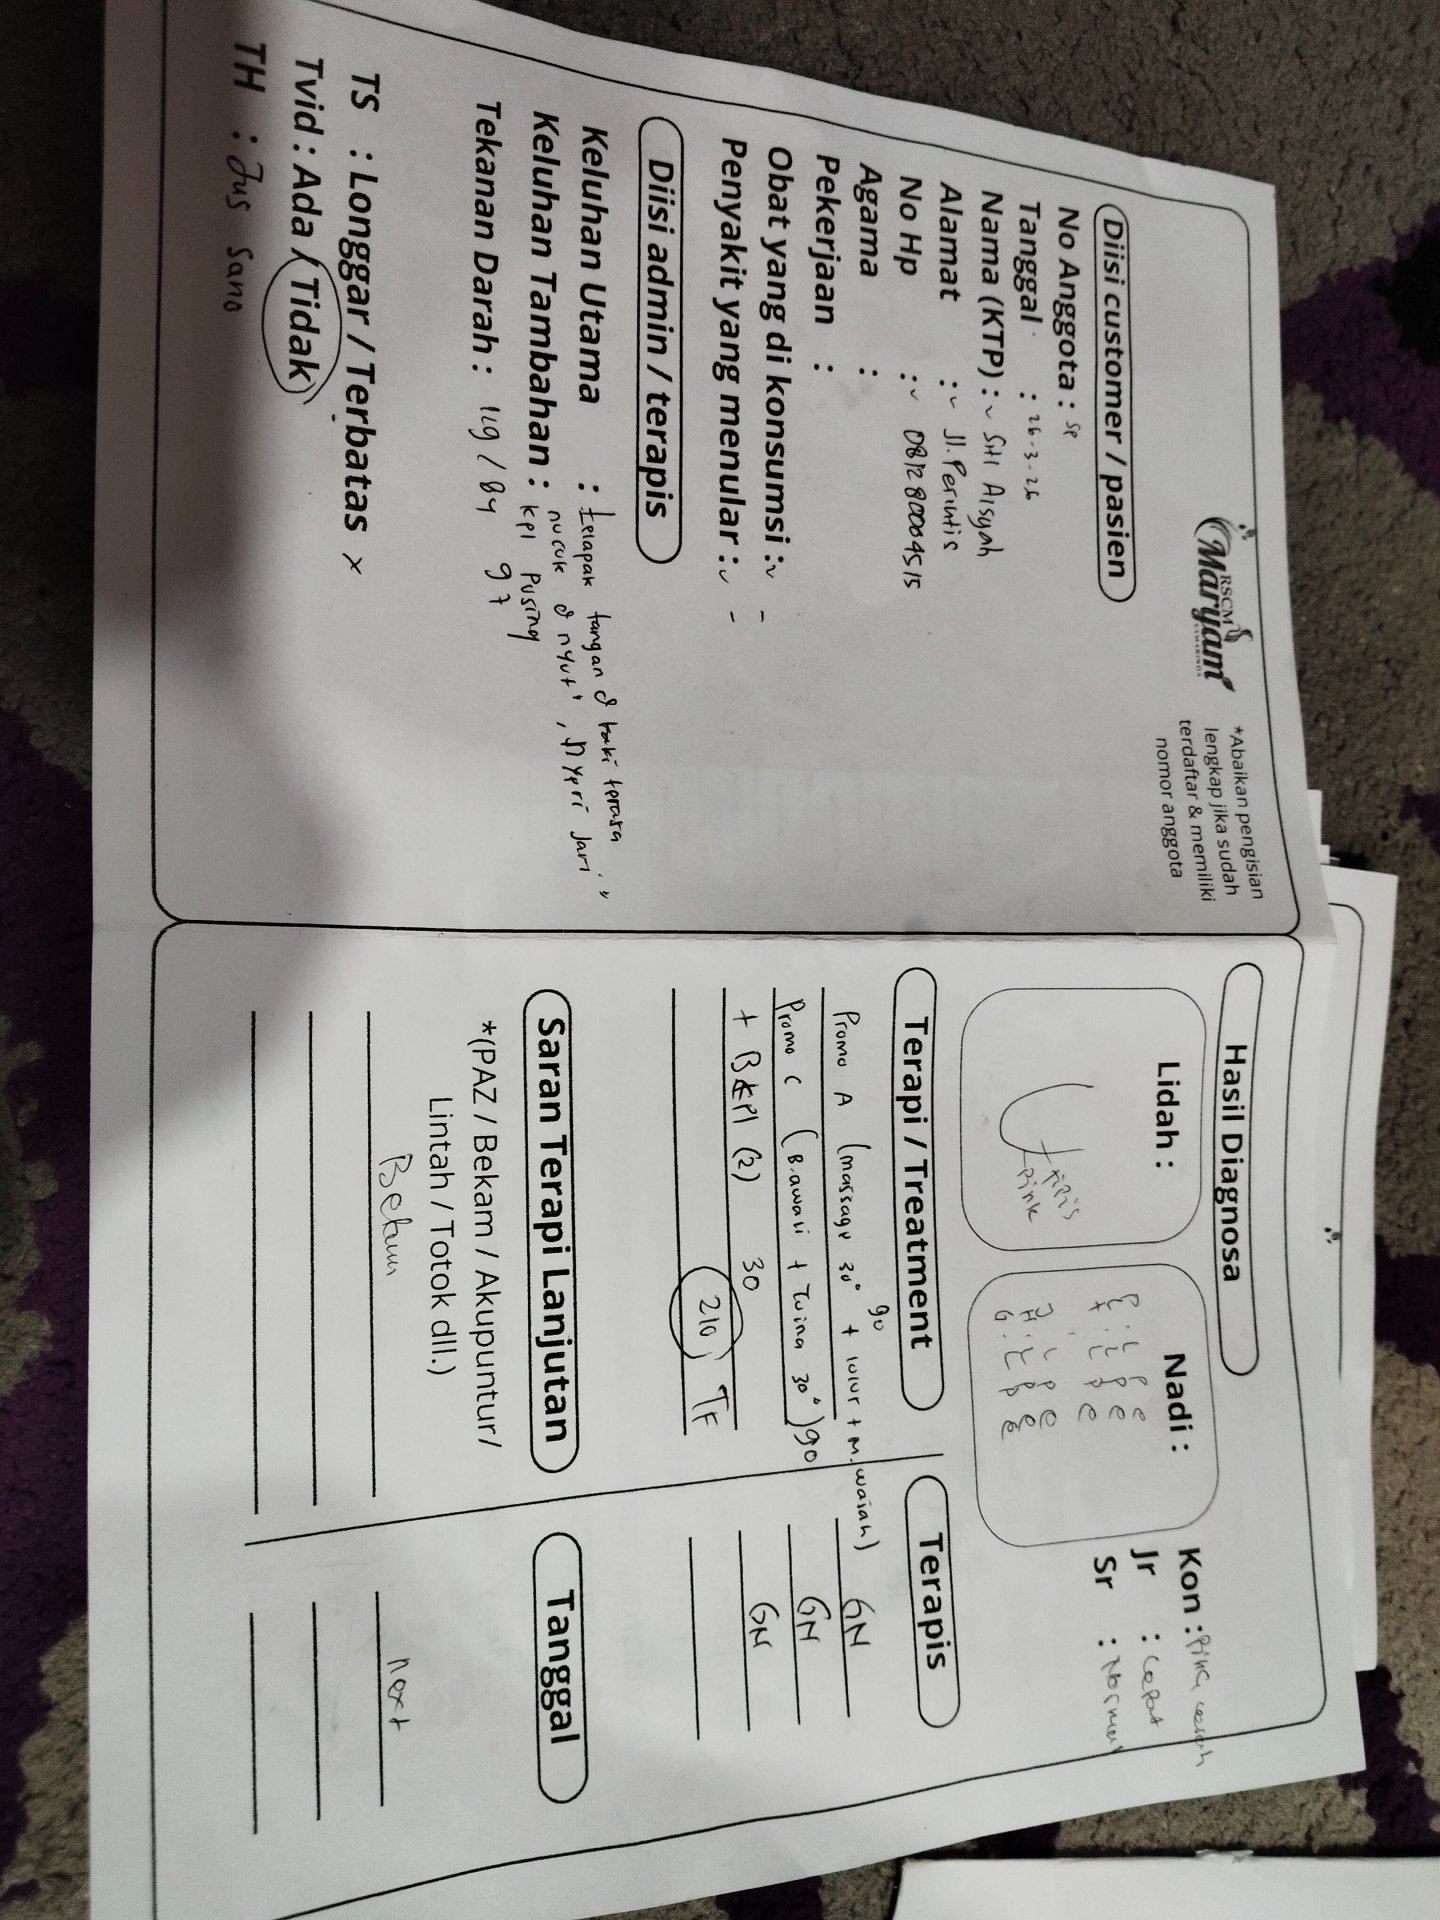 RSCM
Maryam
SAMARINDA
*Abaikan pengisian
lengkap jika sudah
terdaftar & memiliki
nomor anggota
Diisi customer / pasien
No Anggota :
Tanggal : 26-3-26
Nama (KTP) : Siti Aisyah
Alamat : Jl. Perintis
No Hp : 081280004515
Agama :
Pekerjaan :
Obat yang di konsumsi : -
Penyakit yang menular : -
Diisi admin / terapis
Keluhan Utama : telapak tangan & kaki terasa
nucuk & nyut', nyeri Jari"
Keluhan Tambahan : kpl pusing
Tekanan Darah : 119 / 84 97
TS : Longgar / Terbatas x
Tvid : Ada / Tidak
TH : Jus Sano
Hasil Diagnosa
Lidah :
tipis
pink
Nadi :
Kon : Pink cerah
Jr : Cepat
Sr : Normal
Terapi / Treatment
Terapis
90
Promo A (massage 30° + lulur + M. wajah) GN
Promo C (B. awari + Tuina 30°) 90 GN
+ B kpl (2) 30 GN
210, TF
Saran Terapi Lanjutan
Tanggal
*(PAZ / Bekam / Akupuntur/
Lintah / Totok dll.)
Bekam next